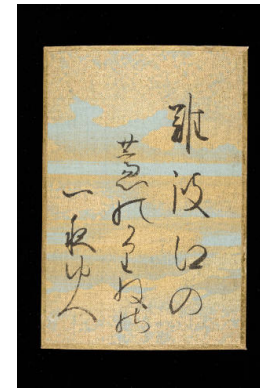 難波江の
蘆のかりねの
一夜ゆへ